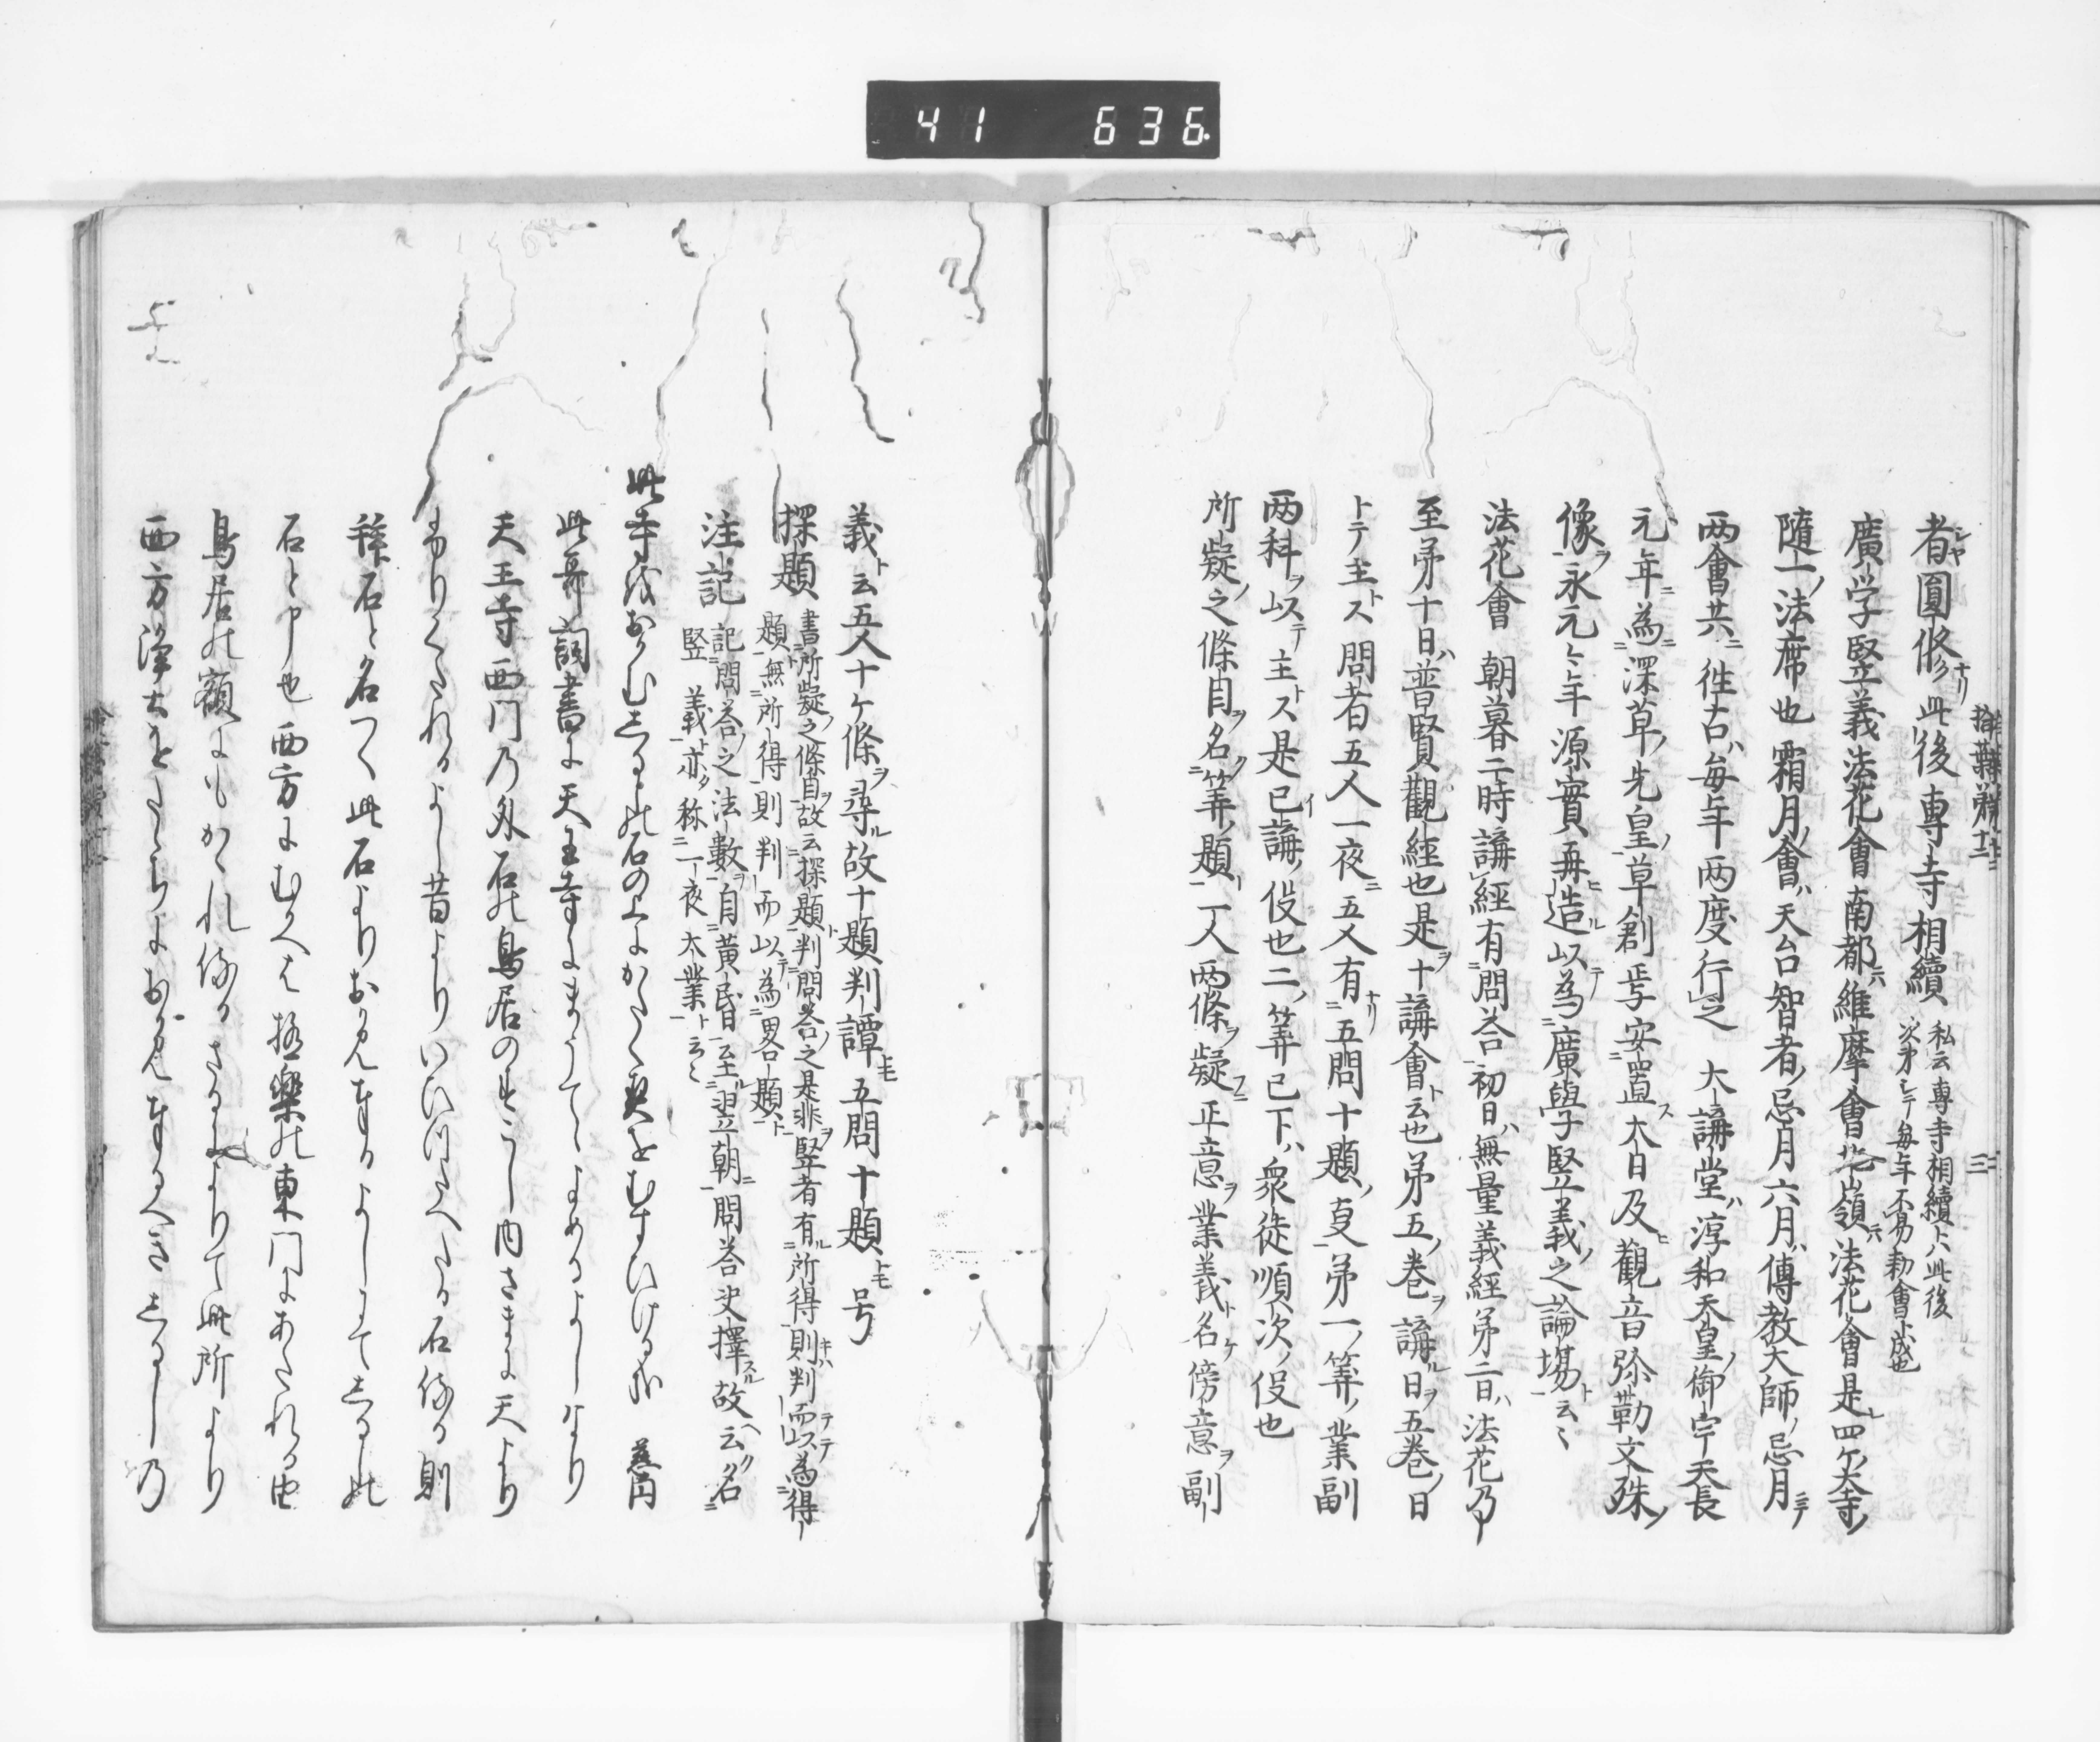 41 636
者圓修此後專寺相續 私云專寺相續ト六此後
次第シテ毎年不易勅會ト成也
廣学竪義法花會南都六維摩會北嶺六法花會是四ケ大寺ノ
隨一ノ法席也 霜月會ハ天台智者ノ忌月六月ハ傳教大師ノ忌月ニテ
両會共ニ往古ハ毎年両度行之 大講堂ハ淳和天皇ノ御宇天長
元年ニ為深草ノ先皇ノ草創焉安置ス大日及ヒ觀音弥勒文殊ノ
像ヲ永元々年源實再ヒ造ル以テ為廣學竪義ノ之論場ト云々
法花會 朝暮二時講經有問答初日ハ無量義經第二日ハ法花乃
至第十日ハ普賢觀経也是ヲ十講會ト云也第五ノ巻ヲ講ル日ヲ五巻ノ日
トテ主トス 問者五人一夜ニ五人有ナリ五問十題ノ㕝第一ノ筭ノ業副
両科ヲ以テ主トス是已講ノ役也二ノ筭已下ハ衆徒順次ノ役也
所疑ノ之條目ヲ名ク筭ノ題一人両條ヲ疑フニ正意ヲ業義ト名ケ傍意ヲ副
義ト云五人十ケ條ヲ尋ル故十題判譚トモ五問十題トモ号
探題 書所疑ノ之條目ヲ故云探題ト判問答ノ之是非ヲ竪者有ル所得則キハ判而以テ為得
題ト無所得則判而以テ為畧題ト
注記 記問答ノ之法數ヲ自黄昏至ル翌朝問答決擇スル故云ヘク名
竪義ト亦タ称一夜大業ト云々
此寺をおかむしるしの石の上にかたく契をむすひける哉 慈円
此哥詞書に天王寺にまうてゝよめるよしなり
天王寺西門乃外石の鳥居のすこし内さまに天より
ふりくたれるよし昔よりいひつたへたる石侍る則
拝石と名つく此石よりおかみ奉るよしにてしるしの
石と申也西方にむかへは極樂の東門にあたれる由
鳥居の額にもかゝれ侍るさるによりて此所より
西方淨土をたゝちにおかみ奉るへきしるし乃